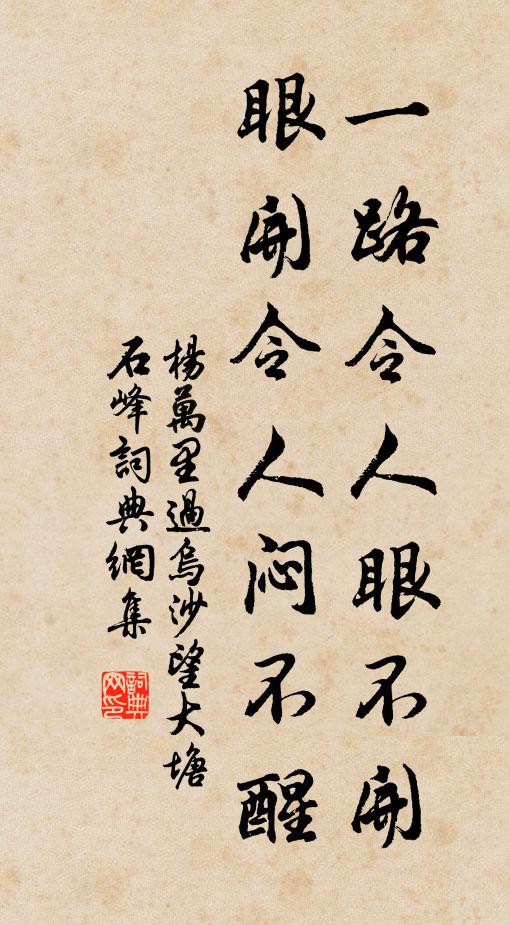 一路令人眼不開
眼開令人闷不醒
楊萬里過烏沙望大塘
石峰詞典網集
詞典
网印